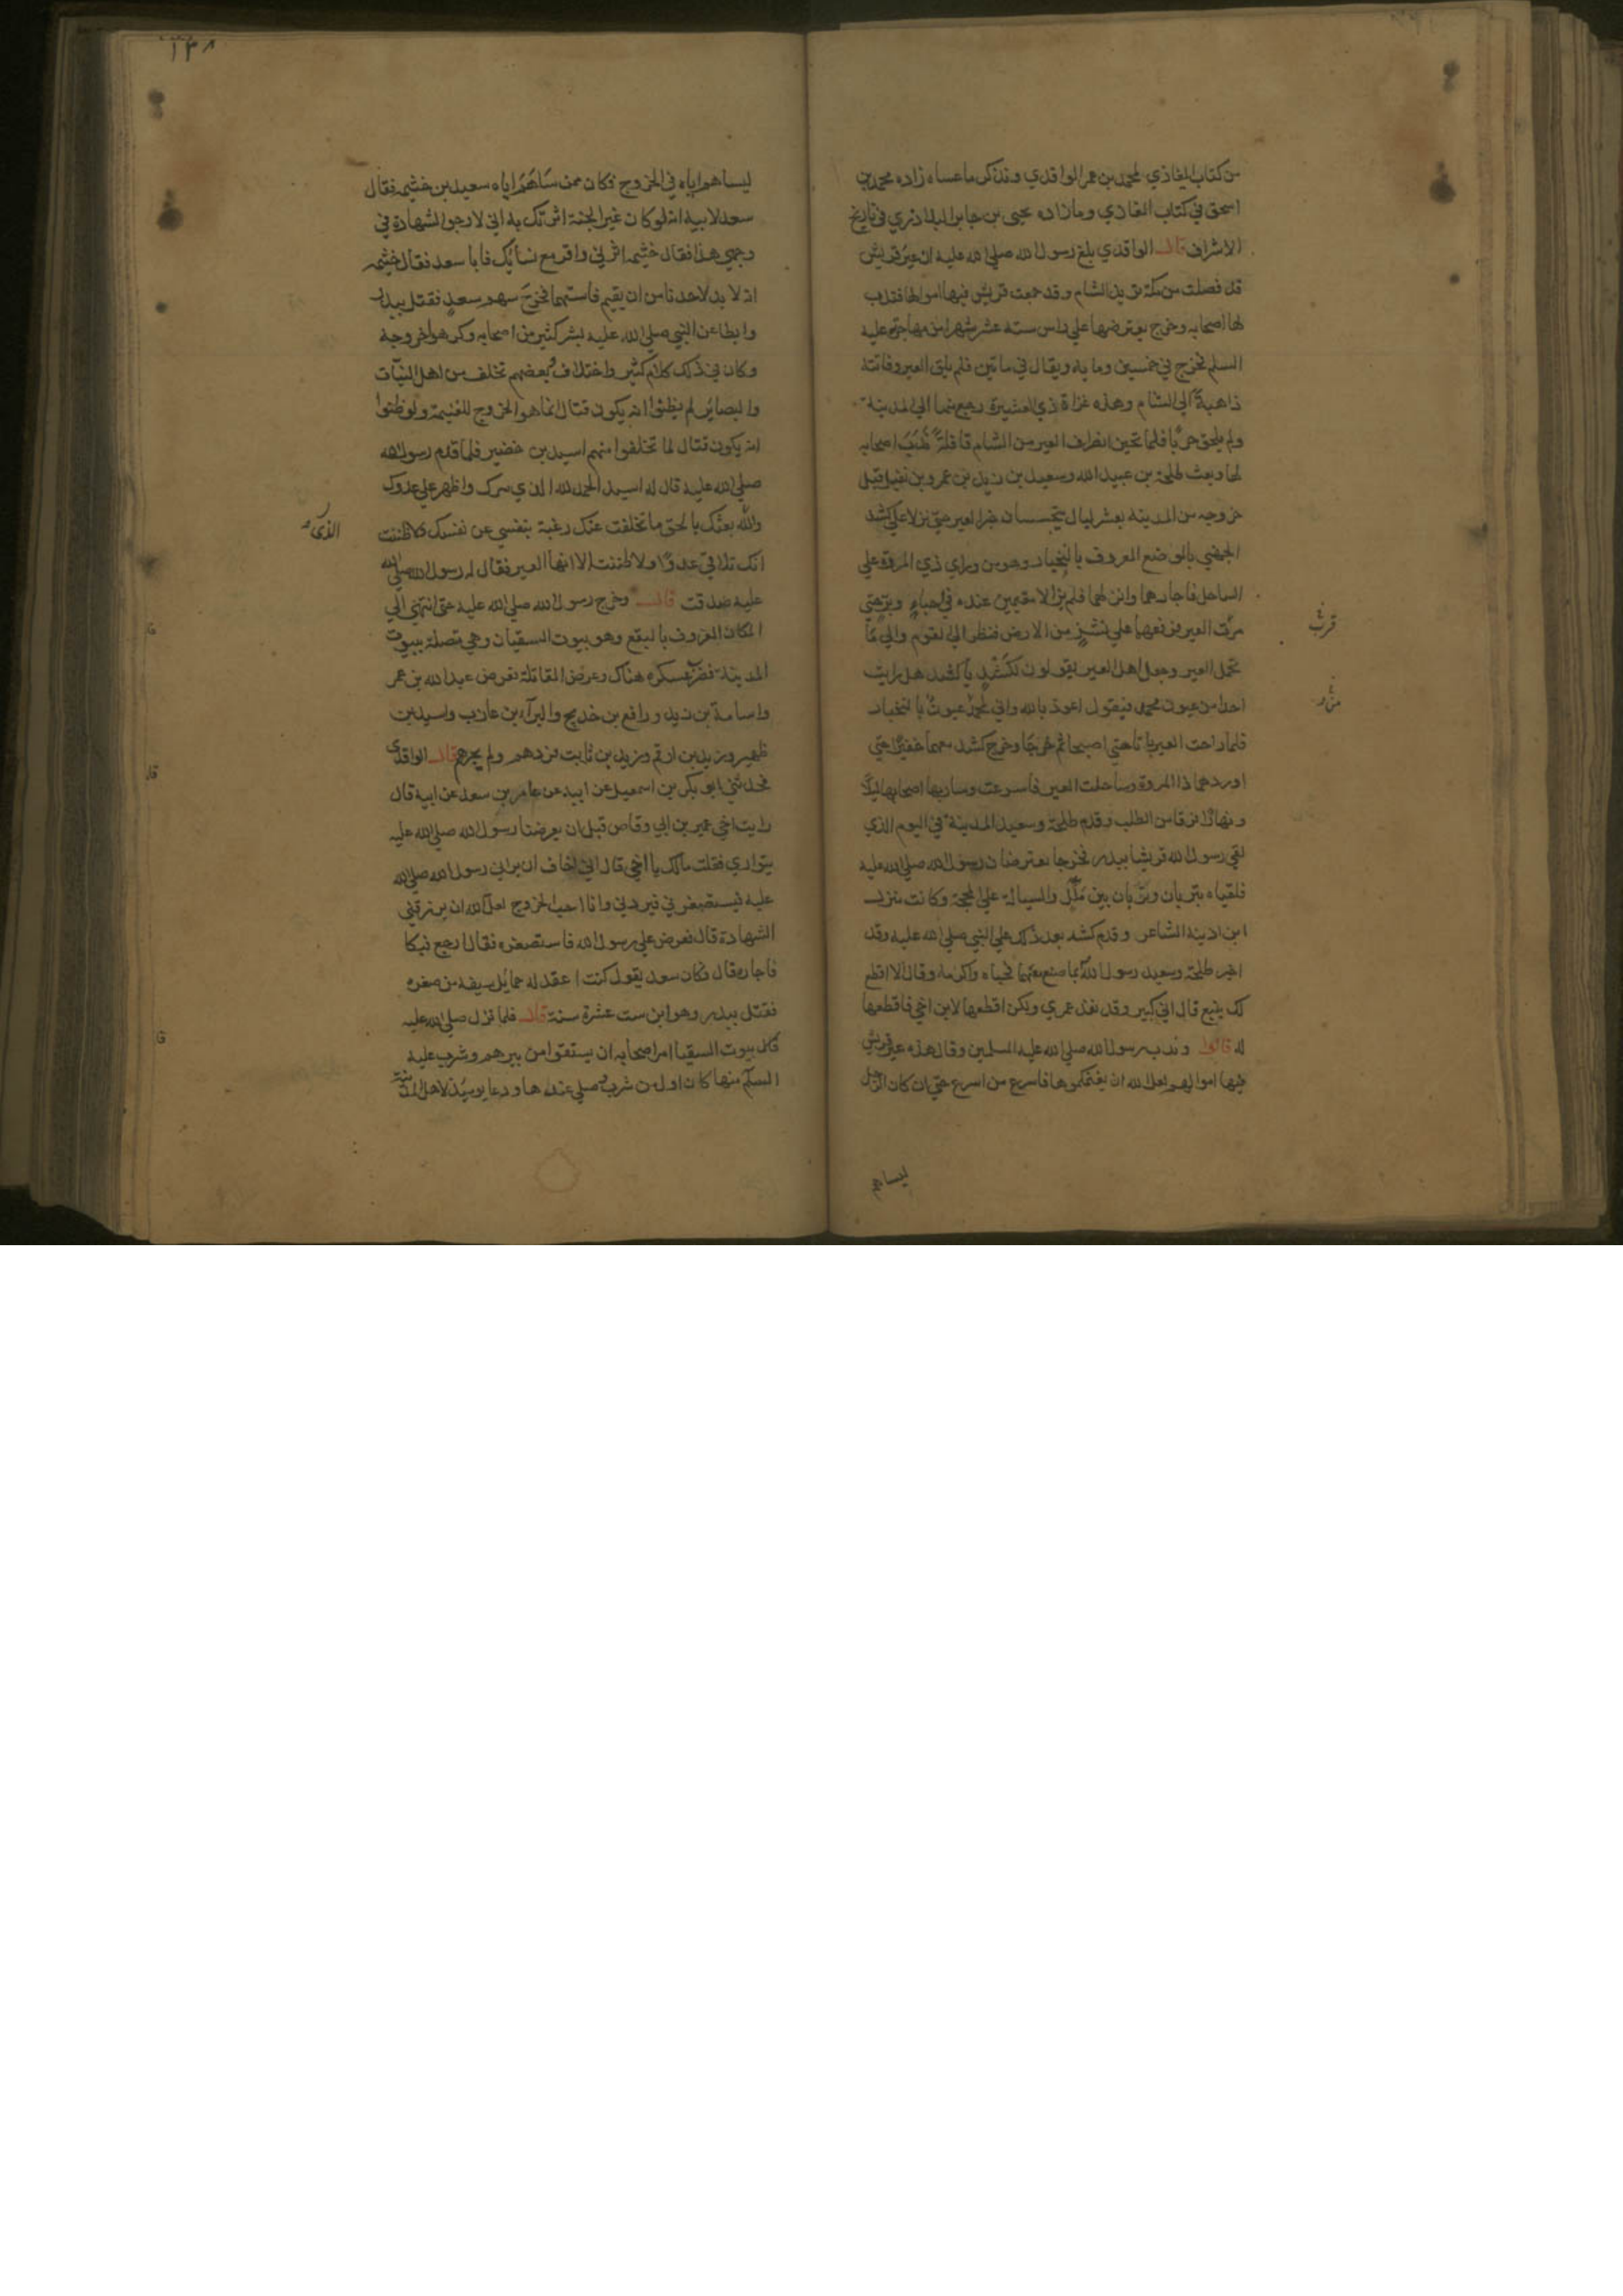 من كتاب المغازي لمحمد بن عمر الواقدي ونذكر ما عساه زاده محمد بن
اسحق في كتاب المغازي وما زاده يحيى بن جابر البلاذري في تاريخ
الاشراف قال الواقدي بلغ رسول الله صلي الله عليه ان عير قريش
قد فصلت من مكة تريد الشام وقد جمعت قريش فيها اموالها فندب
لها اصحابه وخرج يعترضها علي راس ستة عشر شهرا من مهاجرته عليه
السلم فخرج في خمسين وماية ويقال في ماتين فلم يلق العير وفاتته
ذاهبة الي الشام وهذه غزاة ذي العشيرة رجع منها الي المدينة
ولم يلق حربا فلما تحين انصراف العير من الشام قافلة ندب اصحابه
لها وبعث طلحة بن عبيد الله وسعيد بن زيد بن عمرو بن نفيل قبل
خروجه من المدينة بعشر ليال يتجسسان خبر العير حتي نزلا علي كشد
الجهني بالموضع المعروف بالنخبار وهو من وراي ذي المروة علي
الساحل فاجارهما وانزلهما فلم يزالا مقيمين عنده في اخباء وبر حتي
مرت العير فرفعهما علي نشز من الارض فنظر الي القوم والي ما
تحمل العير وجعل اهل العير يقولون لكشد يا كشد هل رايت
احدا من عيون محمد فيقول اعوذ بالله واني لمحمد عيون بالنخبار
فلما راحت العير باتا حتي اصبحا ثم خرجا وخرج كشد معهما خفيرا حتي
اوردهما ذا المروة وساحلت العير فاسرعت وسار بها اصحابها ليلا
ونهارا فرقا من الطلب وقدم طلحة وسعيد المدينة في اليوم الذي
لقي رسول الله قريشا ببدر فخرجا يعترضان رسول الله صلي الله عليه
فلقياه بتربان وتربان بين ملل والسيالة علي المحجة وكانت منزل
ابن اذينة الشاعر وقدم كشد بعد ذلك علي النبي صلي الله عليه وقد
اخبر طلحة وسعيد رسول الله بما صنع بهما فحياه واكرمه وقال الا اقطع
لك ينبع قال اني كبير وقد نفد عمري ولكن اقطعها لابن اخي فاقطعها
له قالوا وندب رسول الله صلي الله عليه المسلمين وقال هذه عير قريش
فيها اموالهم لعل الله ان يغنمكموها فاسرع من اسرع حتي ان كان الرجل
قرب
ليساهم
١٣٨
ليساهم اباه في الخروج فكان ممن ساهم اباه سعد بن خثيمه فقال
سعد لابيه انه لو كان غير الجنة اثرتك به اني لارجو الشهادة في
وجهي هذا فقال خثيمه اثرني واقر مع نسائك فابا سعد فقال خثيمه
انه لا بد لاحدنا من ان يقيم فاستهما فخرج سهم سعد فقتل ببدر
وابطا عن النبي صلي الله عليه بشر كثير من اصحابه وكرهوا خروجه
وكان في ذلك كلام كثير واختلاف وبعضهم تخلف من اهل النيات
والبصاير لم يظنوا انه يكون قتال انما هو الخروج للغنيمة ولو ظنوا
انه يكون قتال لما تخلفوا منهم اسيد بن حضير فلما قدم رسول الله
صلي الله عليه قال له اسيد الحمد لله الذي سرك واظهر علي عدوك
والله بعثك بالحق ما تخلفت عنك رغبة بنفسي عن نفسك ولا ظننت
الذي
انك تلاقي عدوا ولا ظننت الا انها العير فقال له رسول الله صلي الله
عليه صدقت قال وخرج رسول الله صلي الله عليه حتي انتهي الي
المكان المعروف بالبقع وهو بيوت السقيان وهي متصلة ببيوت
المدينة فضرب عسكره هناك وعرض المقاتلة فعرض عبد الله بن عمر
واسامة بن زيد ورافع بن خديج والبرآء بن عازب واسيد بن
ظهير وزيد بن ارقم وزيد بن ثابت فردهم ولم يجزهم قال الواقدي
فحدثني ابو بكر بن اسمعيل عن ابيه عن عامر بن سعد عن ابية قال
رايت اخي عمير بن ابي وقاص قبل ان يعرضنا رسول الله صلي الله عليه
يتواري فقلت مالك يا اخي قال اني اخاف ان يراني رسول الله صلي الله
عليه فيستصغرني فيردني وانا احب الخروج لعل الله ان يرزقني
الشهادة قال فعرض علي رسول الله فاستصغره فقال ارجع فبكا
فاجازه قال فكان سعد يقول كنت اعقد له حمايل سيفه من صغره
فقتل ببدر وهو ابن ست عشرة سنة قال فلما نزل صلي الله عليه
بيوت السقيا امر اصحابه ان يستقوا من بيرهم وشرب عليه
السلم منها كان اول من شرب وصلي عندها ودعا يوميذ لاهل المدينة